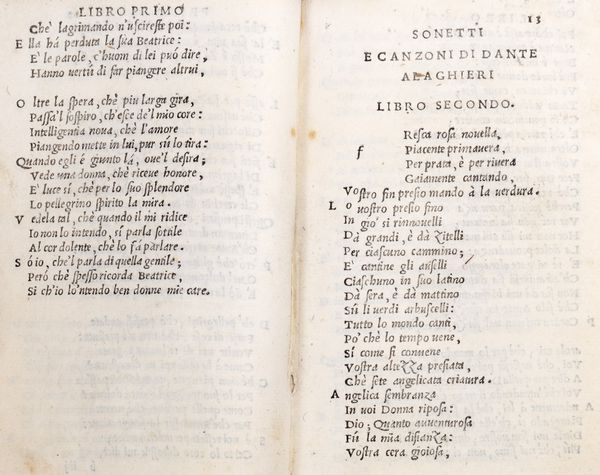 LIBRO PRIMO
Che' lagrimando n'uscireste poi:
E lla ha perduta la sua Beatrice:
E' le parole, c'huom di lei può dire,
Hanno vertù di far piangere altrui,
O ltre la spera, chè piu larga gira,
Passa'l sospiro, ch'esce de'l mio core:
Intelligentia noua, chè l'amore
Piangendo mette in lui, pur sù lo tira:
Quando egli é giunto là, oue'l desira;
Vede una donna, chè riceue honore,
E' luce sì, chè per lo suo splendore
Lo pellegrino spirito la mira.
V edela tal, chè quando il mi ridice
Io non lo intendo, sí parla sotile
Al cor dolente, chè lo fà parlare.
S ó io, chè'l parla di quella gentile;
Peró chè spesso ricorda Beatrice,
Si ch'io lo'ntendo ben donne mie care.
13
SONETTI
E CANZONI DI DANTE
ALAGHIERI
LIBRO SECONDO.
f Resca rosa nouella,
Piacente primauera,
Per prata, è per riuera
Gaiamente cantando,
Vostro fin presio mando à la uerdura.
L o uostro presio fino
In gio' si rinnouelli
Da grandi, è dà Zitelli
Per ciascuno cammino;
E' cantine gli auselli
Ciaschuno in suo latino
Dà sera, è dà mattino
Sù li uerdi arbuscelli:
Tutto lo mondo canti,
Po' chè lo tempo uene,
Sí come si conuene
Vostra alteZZa presiata,
Chè sete angelicata criatura.
A ngelica sembranza
In uoi Donna riposa:
Dio; Quanto auuenturosa
Fù la mia disianZa:
Vostra cera gioiosa,